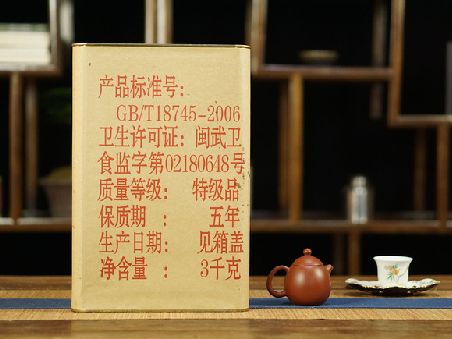 产品标准号:
GB/T18745-2006
卫生许可证: 闽武卫
食监字第02180648号
质量等级: 特级品
保质期 : 五年
生产日期: 见箱盖
净含量 : 3千克